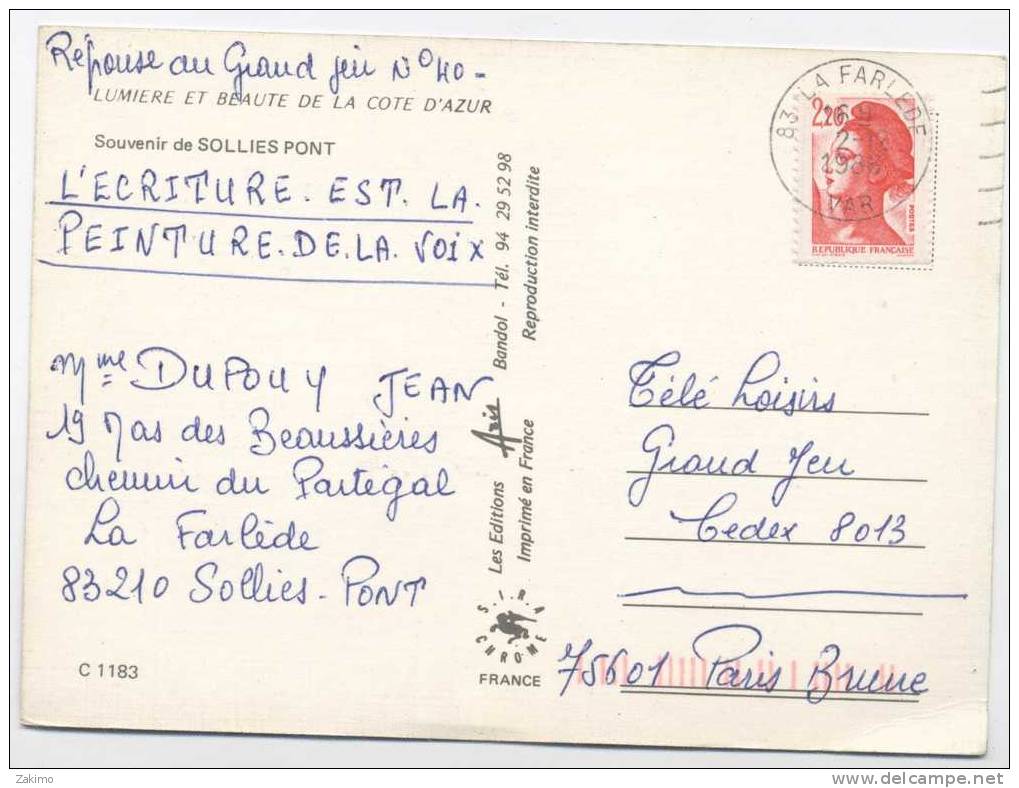 Réponse au Grand jeu N°40-
LUMIERE ET BEAUTE DE LA COTE D'AZUR
Souvenir de SOLLIES PONT
L'ECRITURE. EST. LA.
PEINTURE. DE. LA. VOIX
Mme DUPOUY JEAN
19 Mas des Beaussières
chemin du Partégal
La Farlède
83210 Sollies-PONT
C 1183
Les Editions Aris Bandol - Tél. 94 29 52 98
Imprimé en France Reproduction interdite
S.I.R.A.
CHROME
FRANCE
83 LA FARLEDE
1986
VAR
2,20
POSTES
REPUBLIQUE FRANÇAISE
Télé Loisirs
Grand Jeu
Cedex 8013
75601 Paris Brune
Zakimo
delcampe.net